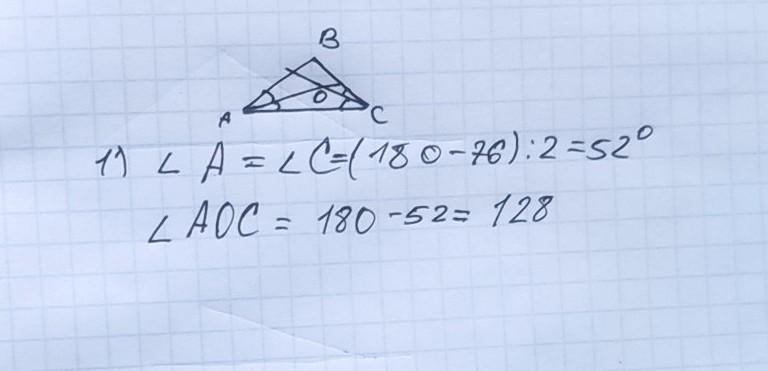 B
O
A
C
1) ∠ A = ∠ C = (180 - 76) : 2 = 52°
∠ AOC = 180 - 52 = 128